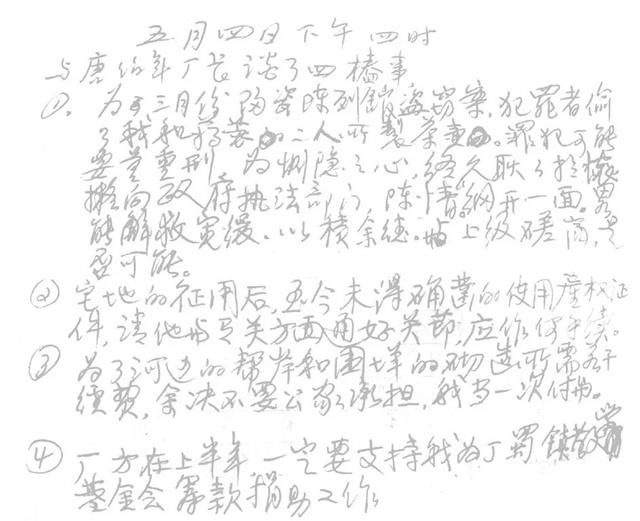 五月四日下午四时
与唐伯年厂长谈了四椿事
①. 为了三月份陶瓷陈列馆盗窃案,犯罪者偷
了我和蒋蓉的二人所製茶壶。罪犯可能
要量重刑 为恻隐之心,终久耿于
向政府执法部门 陈情網开一面。
能解救宽缓、以積余德。与上级磋商,是
否可能。
② 宅地的征用后,至今未得确凿的使用產权证
件,请他与有关方面通好关节,应作何手续。
③ 为了河边的帮岸和围墙的砌造所需若干
经费,余决不要公家承担,我当一次付出。
④ 厂方在上半年一定要支持我为丁蜀镇
基金会筹款捐助工作